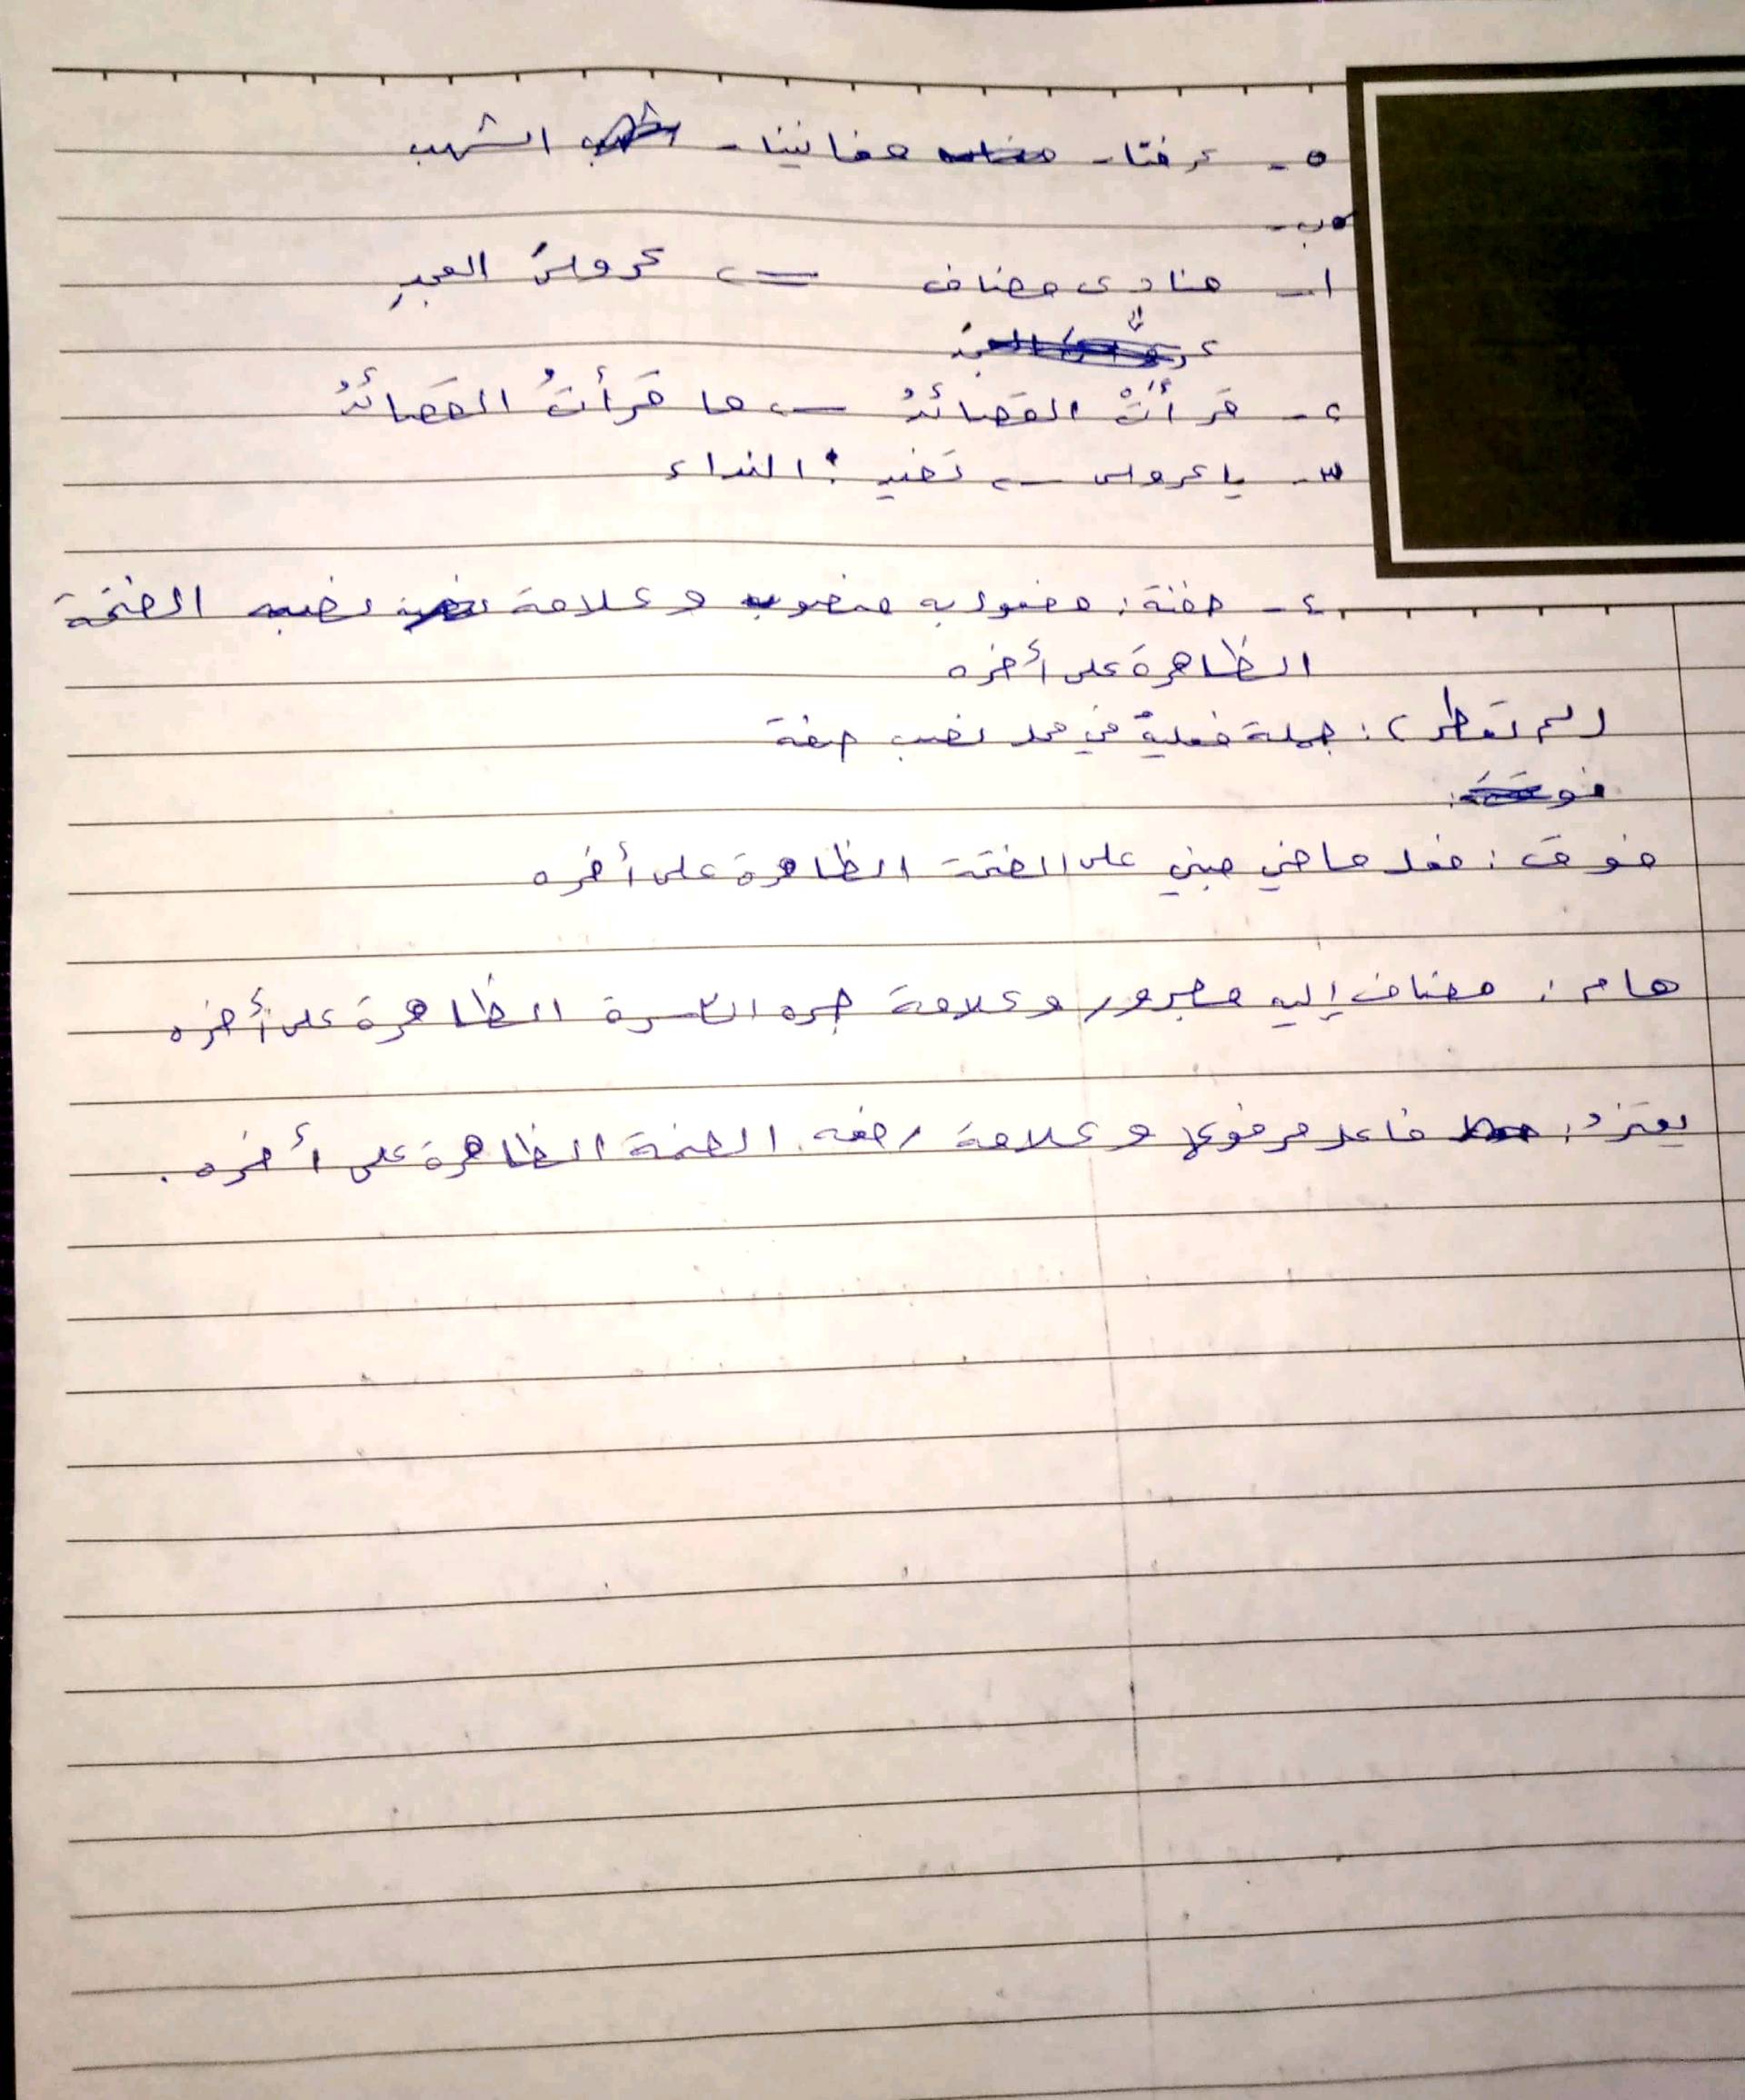 ٥- عرفتا - مغانينا - الشهب
ب-
١- منادى مضاف => عروسَ المجدِ
٢- قرأتْ القصائدُ -> ما قرأتُ القصائدُ
٣- يا عروس -> تفيد : النداء
٤- ضفة : مفعول به منصوب وعلامة نصبه الفتحة
الظاهرة على أخره
(لم تعطر) : جملة فعلية في محل نصب صفة
فوق : فعل ماضي مبني على الفتحة الظاهرة على أخره
هام : مضاف إليه مجرور وعلامة جره الكسرة الظاهرة على أخره
يعتزد : فاعل مرفوع وعلامة رفعه الضمة الظاهرة على أخره .